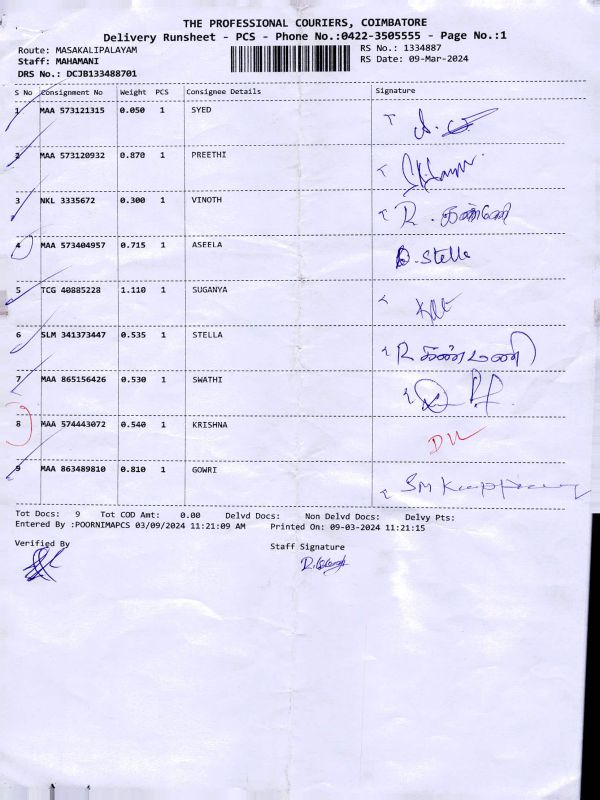 THE PROFESSIONAL COURIERS, COIMBATORE
Delivery Runsheet - PCS - Phone No.:0422-3505555 - Page No.:1
Route: MASAKALIPALAYAM RS No.: 1334887
Staff: MAHAMANI RS Date: 09-Mar-2024
DRS No.: DCJB133488701
S No Consignment No Weight PCS Consignee Details Signature
1 MAA 573121315 0.050 1 SYED
2 MAA 573120932 0.870 1 PREETHI
3 NKL 3335672 0.300 1 VINOTH R.
4 MAA 573404957 0.715 1 ASEELA D.Stella
5 TCG 40885228 1.110 1 SUGANYA
6 SLM 341373447 0.535 1 STELLA R கண்மணி
7 MAA 865156426 0.530 1 SWATHI
8 MAA 574443072 0.540 1 KRISHNA
9 MAA 863489810 0.810 1 GOWRI SM
Tot Docs: 9 Tot COD Amt: 0.00 Delvd Docs: Non Delvd Docs: Delvy Pts:
Entered By :POORNIMAPCS 03/09/2024 11:21:09 AM Printed On: 09-03-2024 11:21:15
Verified By Staff Signature